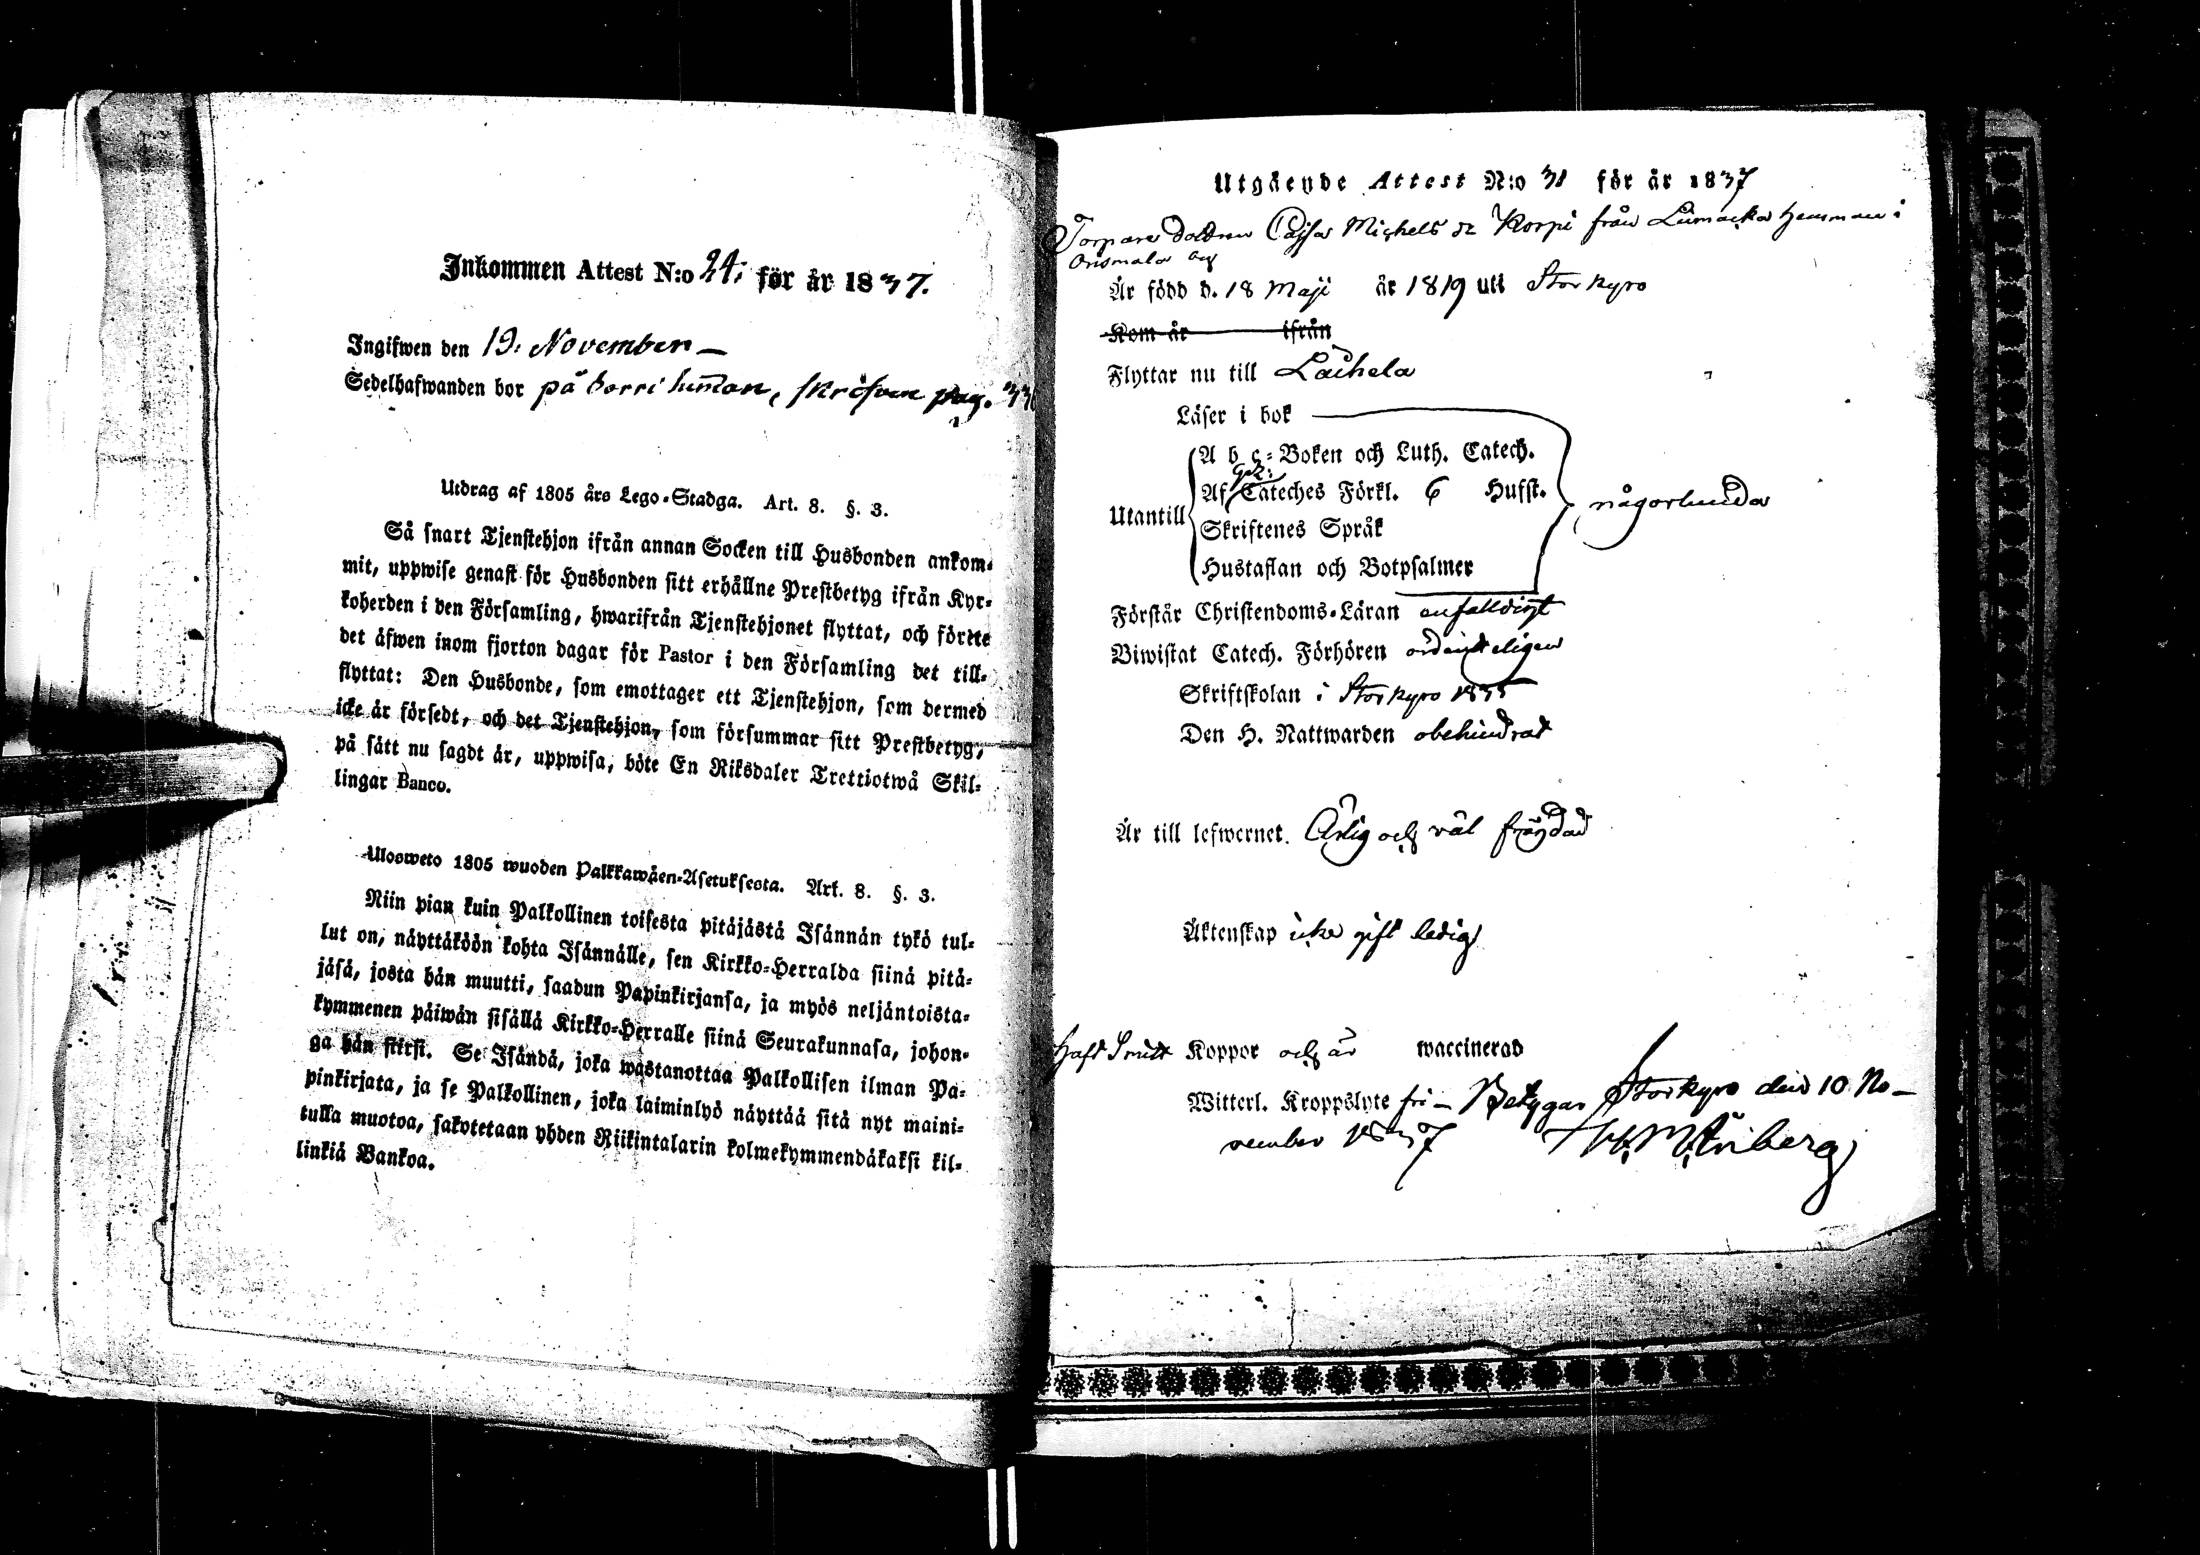 Inkommen Attest N:o 24: för år 1837.
Ingifwen den 19. November
Sedelhafwanden bor på hemman, skrifven pag. 336
Utdrag af 1805 års Lego-Stadga. Art. 8. §. 3.
Så snart Tjenstehjon ifrån annan Socken till Husbonden ankom-
mit, uppwise genast för Husbonden sitt erhållne Prestbetyg ifrån Kyr-
koherden i den Församling, hwarifrån Tjenstehjonet flyttat, och förete
det äfwen inom fjorton dagar för Pastor i den Församling det till-
flyttat: Den Husbonde, som emottager ett Tjenstehjon, som dermed
icke är försedt, och det Tjenstehjon, som försummar sitt Prestbetyg,
på sätt nu sagdt är, uppwisa, böte En Riksdaler Trettiotwå Skil-
lingar Banco.
Ulosweto 1805 wuoden Palkkawäen-Asetuksesta. Art. 8. §. 3.
Niin pian kuin Palkollinen toisesta pitäjästä Isännän tykö tul-
lut on, näyttäköön kohta Isännälle, sen Kirkko-Herralda siinä pitä-
jäsä, josta hän muutti, saadun Papinkirjansa, ja myös neljäntoista-
kymmenen päiwän sisällä Kirkko-Herralle siinä Seurakunnasa, johon-
ga hän siirsi. Se Isändä, joka wastanottaa Palkollisen ilman Pa-
pinkirjata, ja se Palkollinen, joka laiminlyö näyttää sitä nyt maini-
tulla muotoa, sakotetaan yhden Riikintalarin kolmekymmendäkaksi kil-
linkiä Bankoa.
Utgående Attest N:o 31 för år 1837
Torpare dottren Cajsa Michels dr Korpi från Lumacka hemman i
Orismala by
Är född d. 18 Maji år 1819 uti Storkyro
Kom år ifrån
Flyttar nu till Laihela
Läser i bok
A b c-Boken och Luth. Catech.
Af Cateches Förkl. 6 Hufst.
någorlunda
Utantill
Skriftenes Språk
Hustaflan och Botpsalmer
Förstår Christendoms-Läran enfalldigt
Biwistat Catech. Förhören ordenteligen
Skriftskolan i Storkyro 1835
Den H. Nattwarden obehindrad
Är till lefwernet. Ärlig och väl fräjdad
Äktenskap icke gift ledig
Haft Smitt Koppor och är waccinerad
Witterl. Kroppslyte fri – Betygar Storkyro den 10 No-
vember 1837